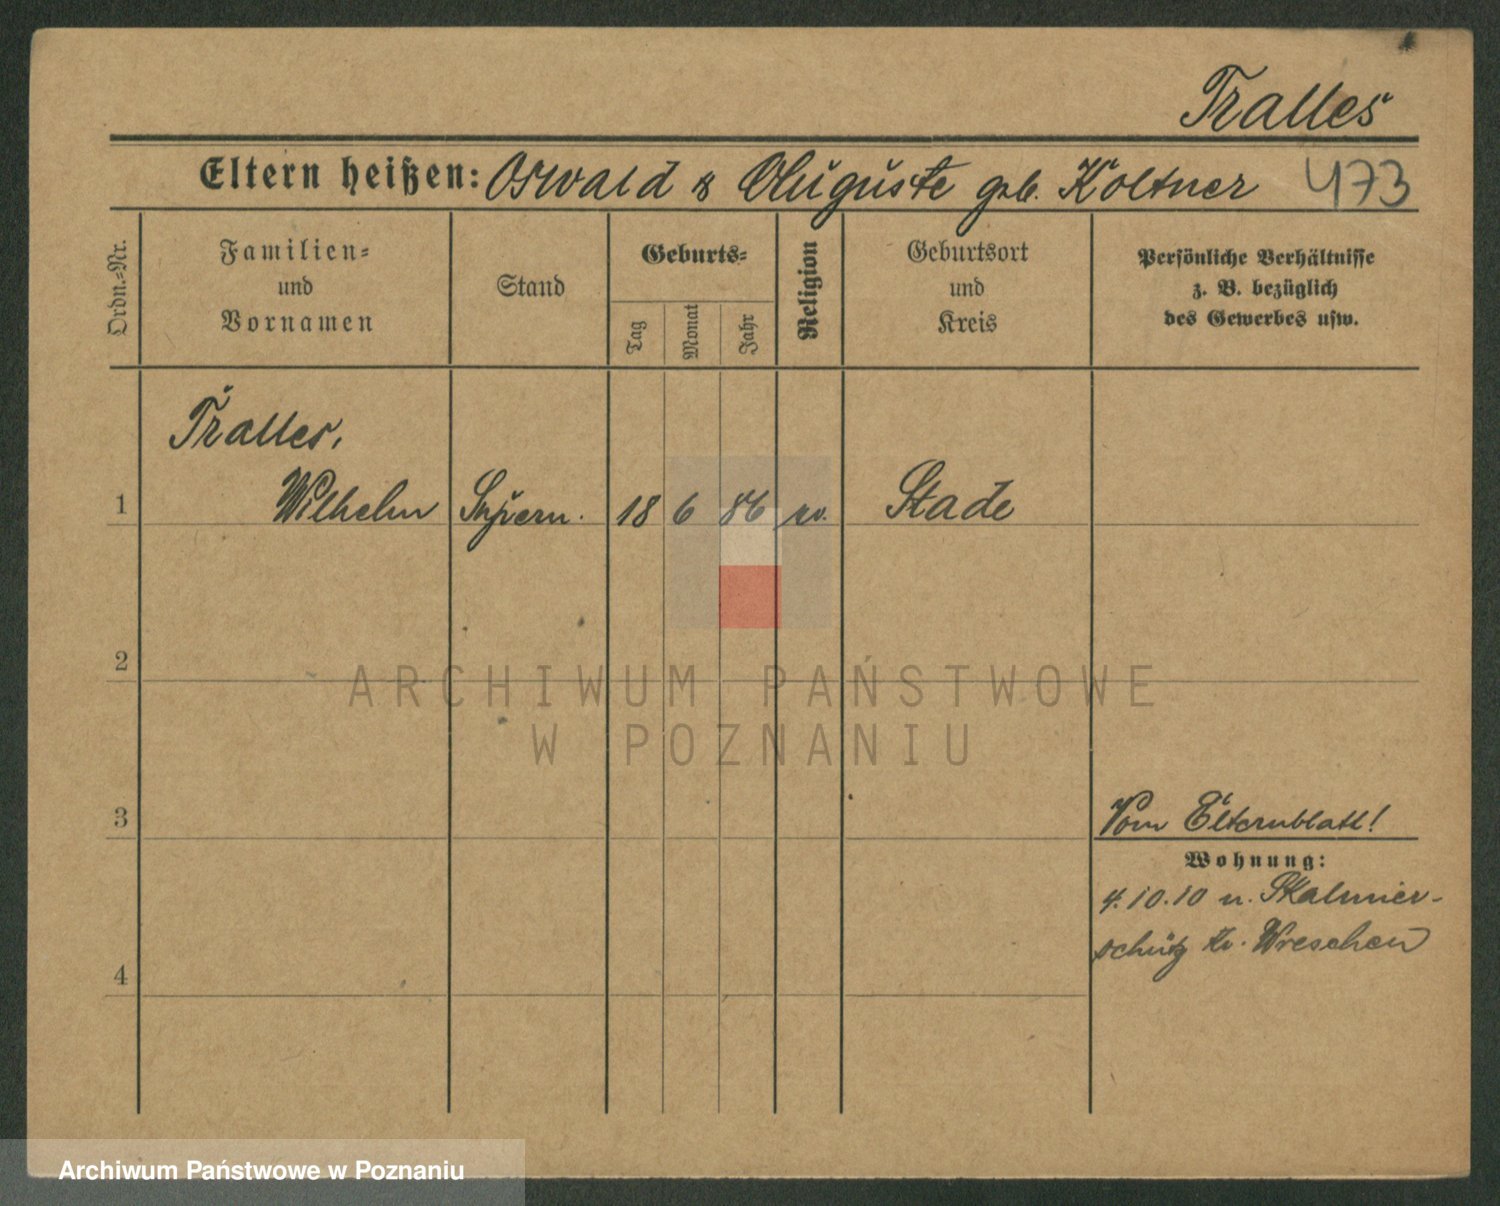 Tralles
Eltern heißen: Oswald & Auguste geb. Költner 473
Ordn.-Nr.
Familien-
und
Vornamen
Stand
Geburts-
Tag
Monat
Jahr
Religion
Geburtsort
und
Kreis
Persönliche Verhältnisse
z. B. bezüglich
des Gewerbes usw.
Tralles,
1 Wilhelm 18 6 86 ev. Stade
2
ARCHIWUM PAŃSTWOWE
W POZNANIU
3 Vom Elternblatt!
Wohnung:
4.10.10 n. Skalmier-
schütz Kr. Wreschen
4
Archiwum Państwowe w Poznaniu